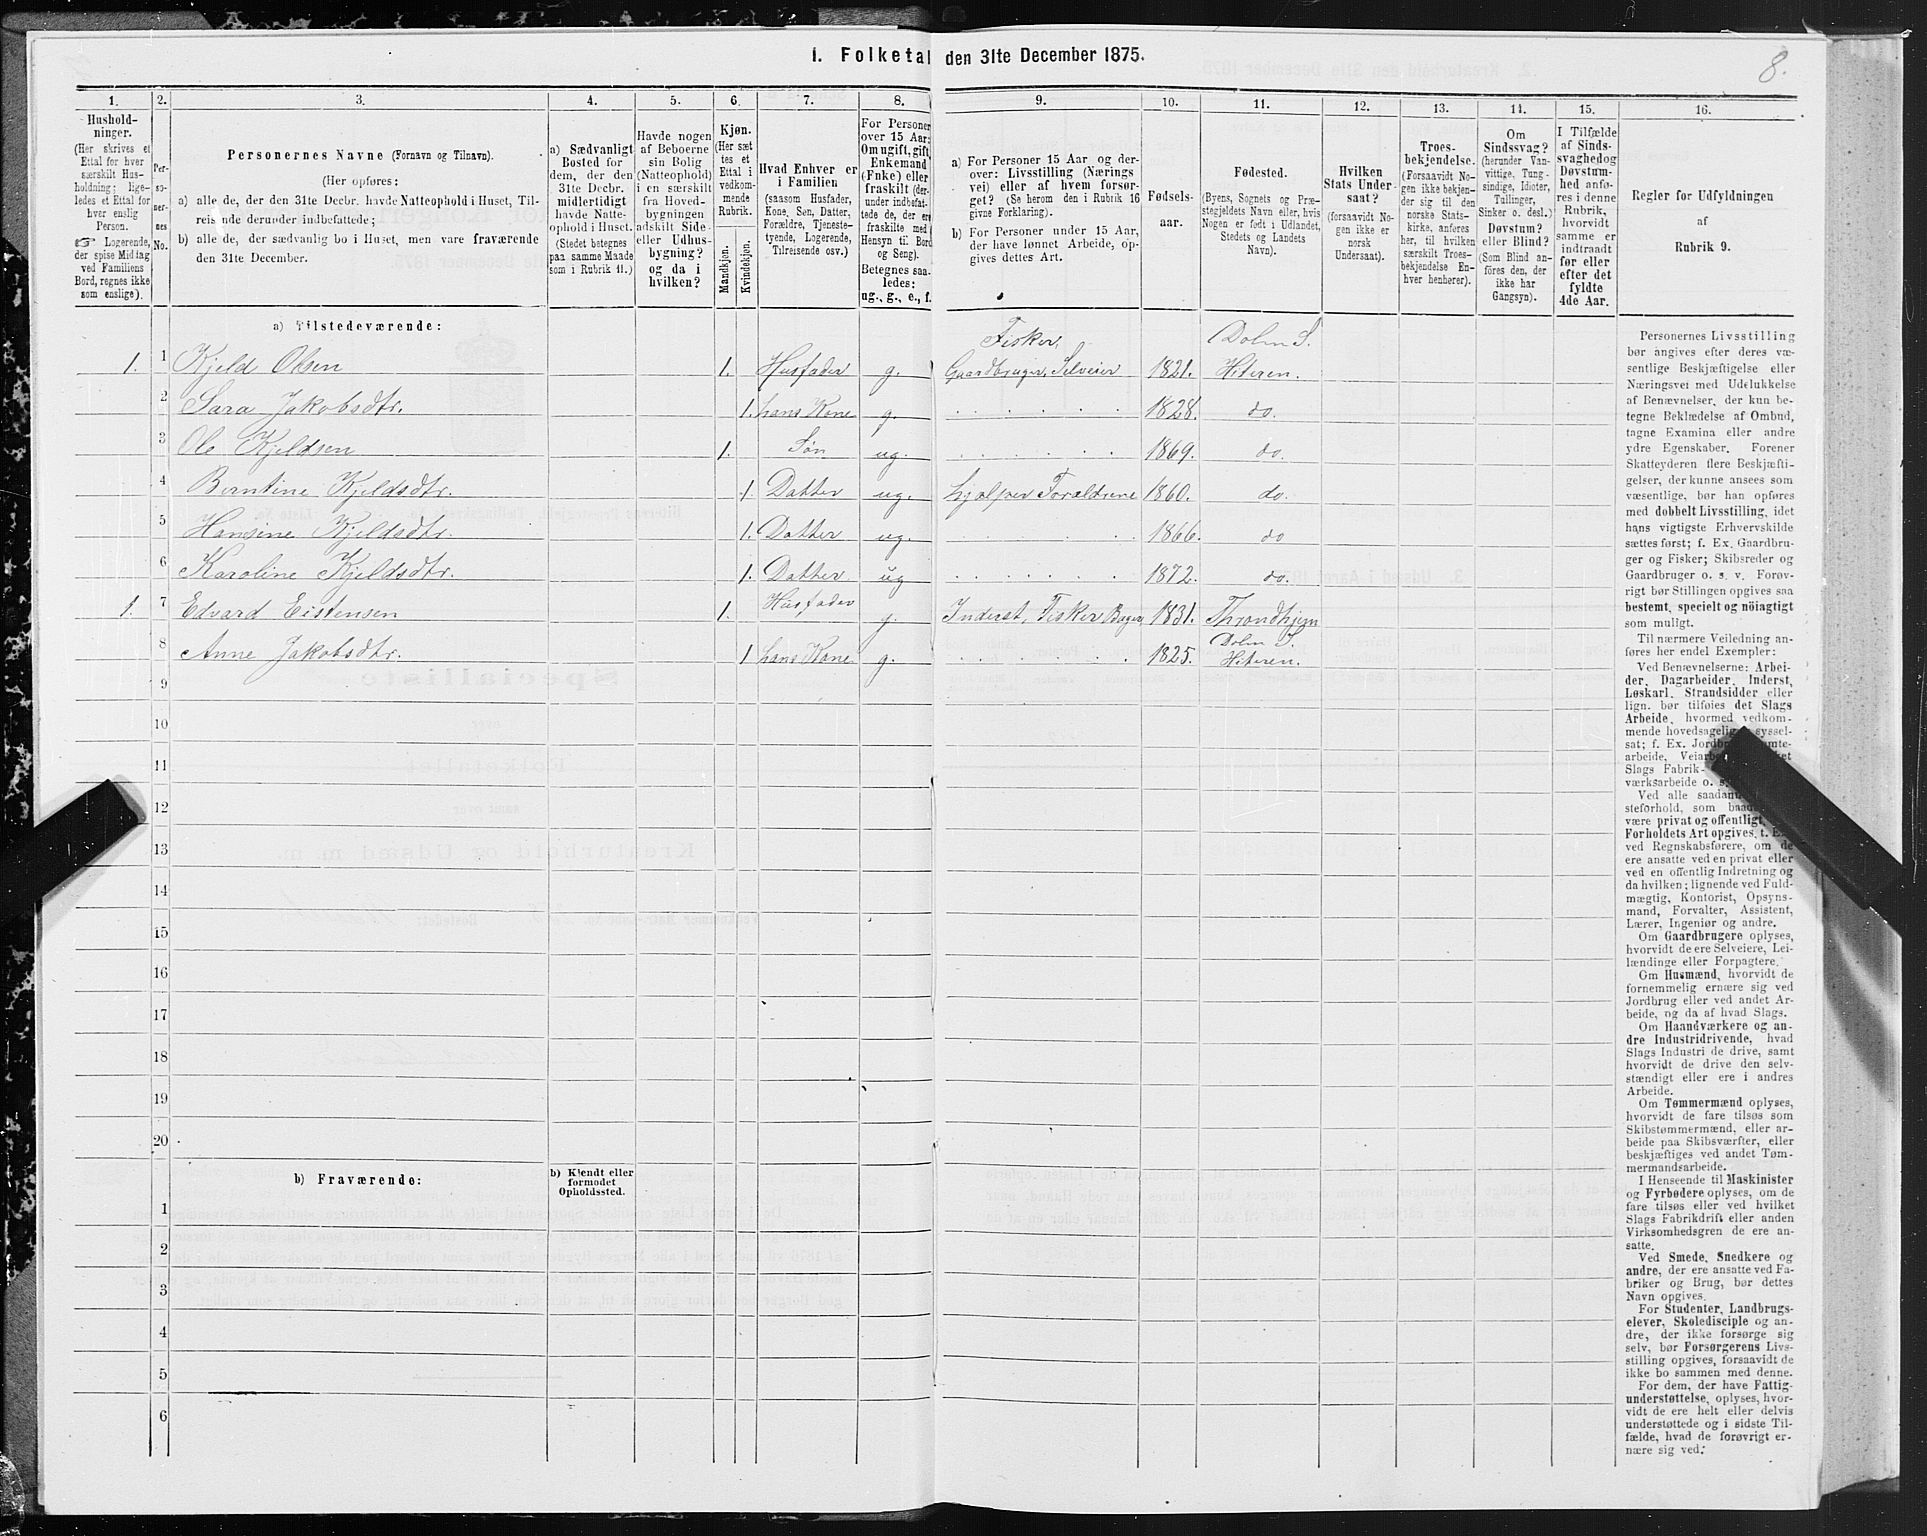 I. Folketal den 31te December 1875.
8.
1.
Hushold-
ninger.
(Her skrives et
Ettal for hver
særskilt Hus-
holdning; lige-
ledes et Ettal for
hver enslig
Person.
Logerende,
der spise Midtag
ved Familiens
Bord, regnes ikke
som enslige).
2.
Per-
so-
ner-
nes
No.
3.
Personernes Navne (Fornavn og Tilnavn).
(Her opføres:
a) alle de, der den 31te Decbr. havde Natteophold i Huset, Til-
reisende derunder indbefattede;
b) alle de, der sædvanlig bo i Huset, men vare fraværende
den 31te December.
4.
a) Sædvanligt
Bosted for
dem, der den
31te Decbr.
midlertidigt
havde Natte-
ophold i Huset.
(Stedet betegnes
paa samme Maade
som i Rubrik 11.)
5.
Havde nogen
af Beboerne
sin Bolig
(Natteophold)
i en særskilt
fra Hoved-
bygningen
adskilt Side-
eller Udhus-
bygning?
og da i
hvilken?
6.
Kjøn.
(Her sæt
tes et
Ettal i
vedkom-
mende
Rubrik.
Mandkjøn.
Kvindekjøn.
7.
Hvad Enhver er
i Familien
(saasom Husfader,
Kone, Søn, Datter,
Forældre, Tjeneste-
tyende, Logerende,
Tilreisende osv.)
8.
For Personer
over 15 Aar:
Om ugift, gift,
Enkemand
(Enke) eller
fraskilt (der-
under indbefat-
tede de, der ere
fraskilte med
Hensyn til Bord
og Seng).
Betegnes saa-
ledes:
ug., g., e., f.
9.
a) For Personer 15 Aar og der-
over: Livsstilling (Nærings
vei) eller af hvem forsør-
get? (Se herom den i Rubrik 16
givne Forklaring).
b) For Personer under 15 Aar,
der have lønnet Arbeide, op-
gives dettes Art.
10.
Fødsels-
aar.
11.
Fødested.
(Byens, Sognets og Præ-
stegjeldets Navn eller, hvis
Nogen er født i Udlandet,
Stedets og Landets
Navn).
12.
Hvilken
Stats Under-
saat?
(forsaavidt No-
gen ikke er
norsk
Undersaat).
13.
Troes-
bekjendelse.
(Forsaavidt No-
gen ikke bekjen-
der sig til den
norske Stats-
kirke, anføres
her, til hvilken
særskilt Troes-
bekjendelse En-
hver henhører).
14.
Om
Sindssvag?
(herunder Van-
vittige, Tung-
sindige, Idioter,
Tullinger,
Sinker o. desl.)
Døvstum?
eller Blind?
(Som Blind an-
føres den, der
ikke har
Gangsyn).
15.
I Tilfælde
af Sinds-
svaghedog
Døvstum-
hed anfø-
res i denne
Rubrik,
hvorvidt
samme er
indtraadt
før eller
efter det
fyldte
4de Aar.
16.
Regler for Udfyldningen
af
Rubrik 9.
a) Tilstedeværende:
Fisker, Dolm S.
1. 1 Kjeld Olsen 1. Husfader g. Gaardbruger, Selveier 1821. Hiteren.
2 Sara Jakobsdtr. 1. hans Kone g. 1828. do.
3 Ole Kjeldsen 1. Søn ug. 1869. do.
4 Berntine Kjeldsdtr. 1. Datter ug. hjælper Forældrene 1860. do.
5 Hansine Kjeldsdtr. 1. Datter ug. 1866. do
6 Karoline Kjeldsdtr. 1. Datter ug 1872. do.
1. 7 Edvard Eistensen 1. Husfader g. Inderst, Fisker 1831. Throndhjem
8 Anne Jakobsdtr. 1 hans Kone g. 1825. Dolm S.
Hiteren.
9
10
11
12
13
14
15
16
17
18
19
20
b) Fraværende:
b) Kjendt eller
formodet
Opholdssted.
1
2
3
4
5
6
Personernes Livsstilling
bør angives efter deres væ-
sentlige Beskjæftigelse eller
Næringsvei med Udelukkelse
af Benævnelser, der kun be-
tegne Beklædelse af Ombud,
tagne Examina eller andre
ydre Egenskaber. Forener
Skatteyderen flere Beskjæfti-
gelser, der kunne ansees som
væsentlige, bør han opføres
med dobbelt Livsstilling, idet
hans vigtigste Erhvervskilde
sættes først; f. Ex. Gaardbru-
ger og Fisker; Skibsreder og
Gaardbruger o. s. v. Forøv-
rigt bør Stillingen opgives saa
bestemt, specielt og nöiagtigt
som muligt.
Til nærmere Veiledning an-
føres her endel Exempler:
Ved Benævnelserne: Arbei-
der, Dagarbeider, Inderst,
Løskarl, Strandsidder eller
lign. bør tilføies det Slags
Arbeide, hvormed vedkom-
mende hovedsagelig syssel-
sat; f. Ex. Tomte-
arbeide,
Slags Fabrik-
værksarbeide o. s.
Ved alle
steforhold, som
være privat og offentligt,
Forholdets Art opgives, t. Ex.
ved Regnskabsførere, om de
ere ansatte ved en privat eller
ved en offentlig Indretning og
da hvilken; lignende ved Fuld-
mægtig, Kontorist, Opsyns-
mand, Forvalter, Assistent,
Lærer, Ingeniør og andre.
Om Gaardbrugere oplyses,
hvorvidt de ere Selveiere, Lei-
lændinge eller Forpagtere.
Om Husmænd, hvorvidt de
fornemmelig ernære sig ved
Jordbrug eller ved andet Ar-
beide, og da af hvad Slags.
Om Haandværkere og an-
dre Industridrivende, hvad
Slags Industri de drive, samt
hvorvidt de drive den selv-
stændigt eller ere i andres
Arbeide.
Om Tømmermænd oplyses,
hvorvidt de fare tilsøs som
Skibstømmermænd, eller ar-
beide paa Skibsværfter, eller
beskjæftiges ved andet Tøm-
mermandsarbeide.
I Henseende til Maskinister
og Fyrbødere oplyses, om de
fare tilsøs eller ved hvilket
Slags Fabrikdrift eller anden
Virksomhedsgren de ere an-
satte.
Ved Smede, Snedkere og
andre, der ere ansatte ved Fa-
briker og Brug, bør dettes
Navn opgives.
For Studenter, Landbrugs-
elever, Skoledisciple og an-
dre, der ikke forsørge sig
selv, bør Forsørgerens Livs-
stilling opgives, forsaavidt de
ikke bo sammen med denne.
For dem, der have Fattig-
understøttelse, oplyses, hvor-
vidt de ere helt eller delvis
understøttede og i sidste Til-
fælde, hvad de forøvrigt er-
nære sig ved.